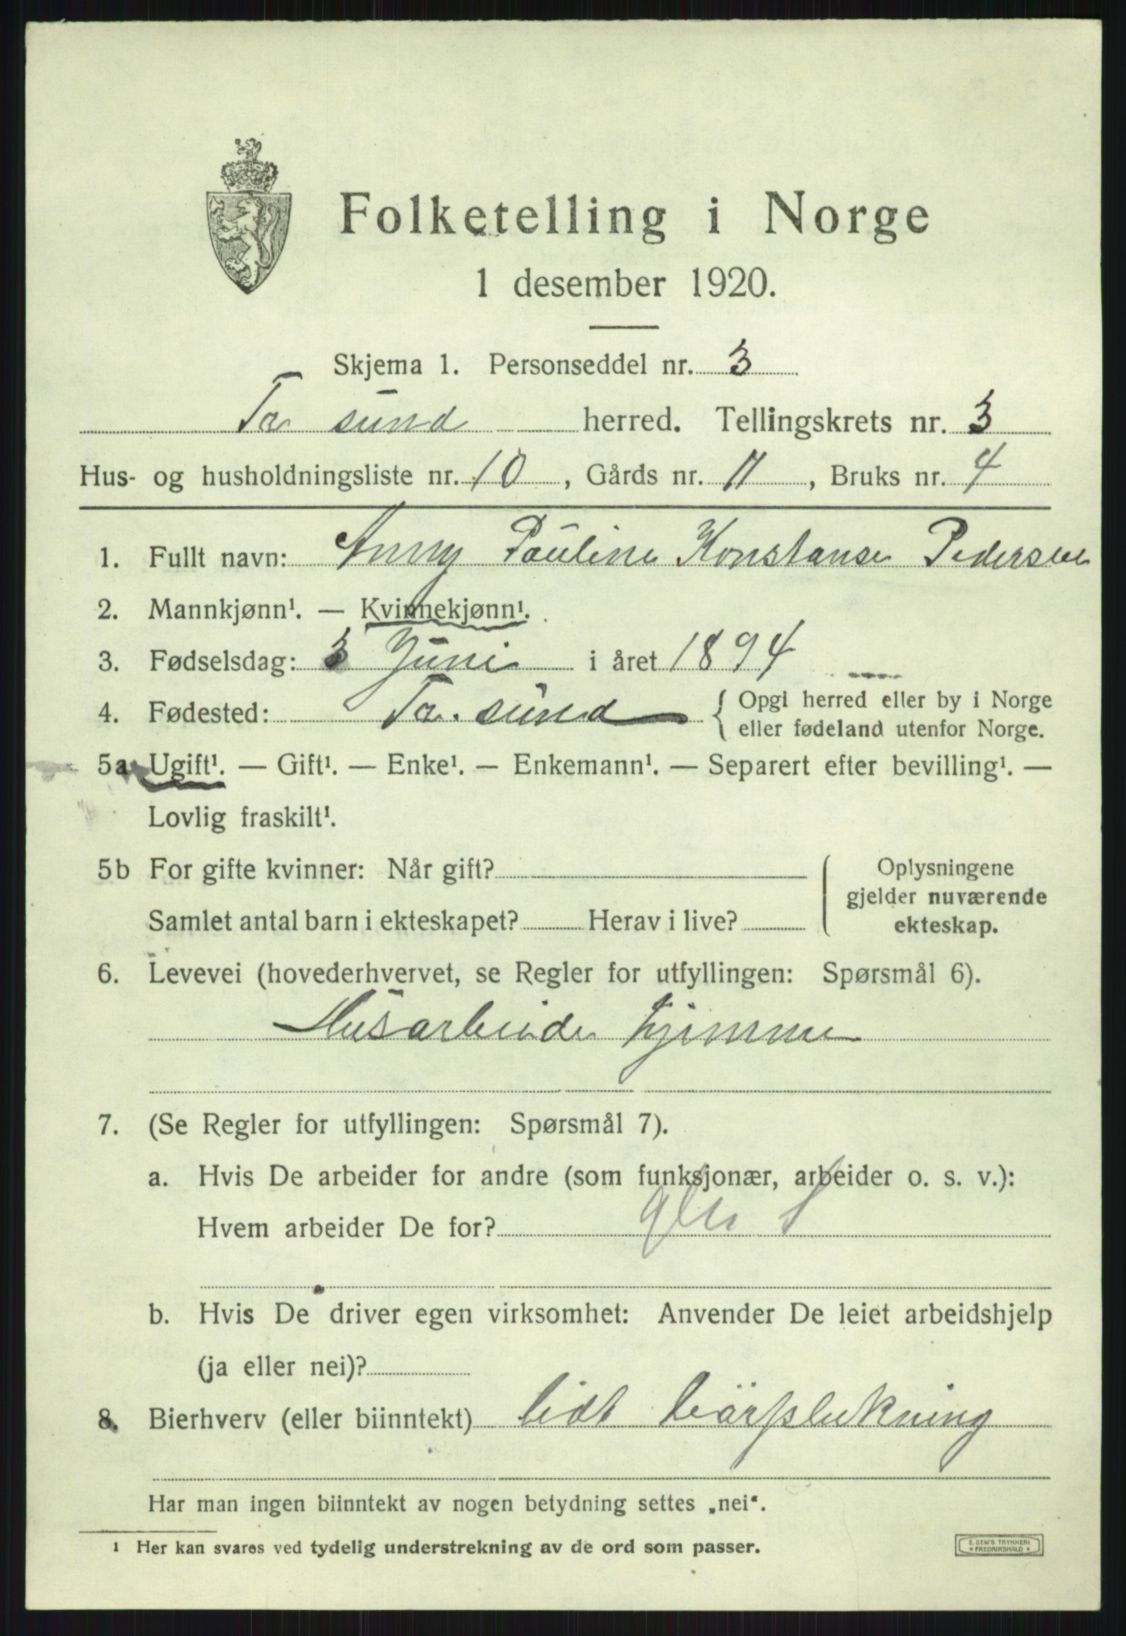 Folketelling i Norge
1 desember 1920.
Skjema 1. Personseddel nr. 3
Tr sund herred. Tellingskrets nr. 3
Hus- og husholdningsliste nr. 10, Gårds nr. 11, Bruks nr. 4
1. Fullt navn: Anny Pauline Konstanse Pedersen
2. Mannkjønn¹. — Kvinnekjønn¹.
3. Fødselsdag: 3 Juni i året 1894
4. Fødested: Tr. sund { Opgi herred eller by i Norge
eller fødeland utenfor Norge.
5a Ugift¹. — Gift¹. — Enke¹. — Enkemann¹. — Separert efter bevilling¹. —
Lovlig fraskilt¹.
5b For gifte kvinner: Når gift?
Samlet antal barn i ekteskapet? Herav i live?
Oplysningene
gjelder nuværende
ekteskap.
6. Levevei (hovederhvervet, se Regler for utfyllingen: Spørsmål 6).
Husarbeide hjemme
7. (Se Regler for utfyllingen: Spørsmål 7).
a. Hvis De arbeider for andre (som funksjonær, arbeider o. s. v.):
Hvem arbeider De for?
b. Hvis De driver egen virksomhet: Anvender De leiet arbeidshjelp
(ja eller nei)?
8. Bierhverv (eller biinntekt) lidt bärplukning
Har man ingen biinntekt av nogen betydning settes „nei“.
¹ Her kan svares ved tydelig understrekning av de ord som passer.
E. SEM'S TRYKKERI
* FREDRIKSHALD *